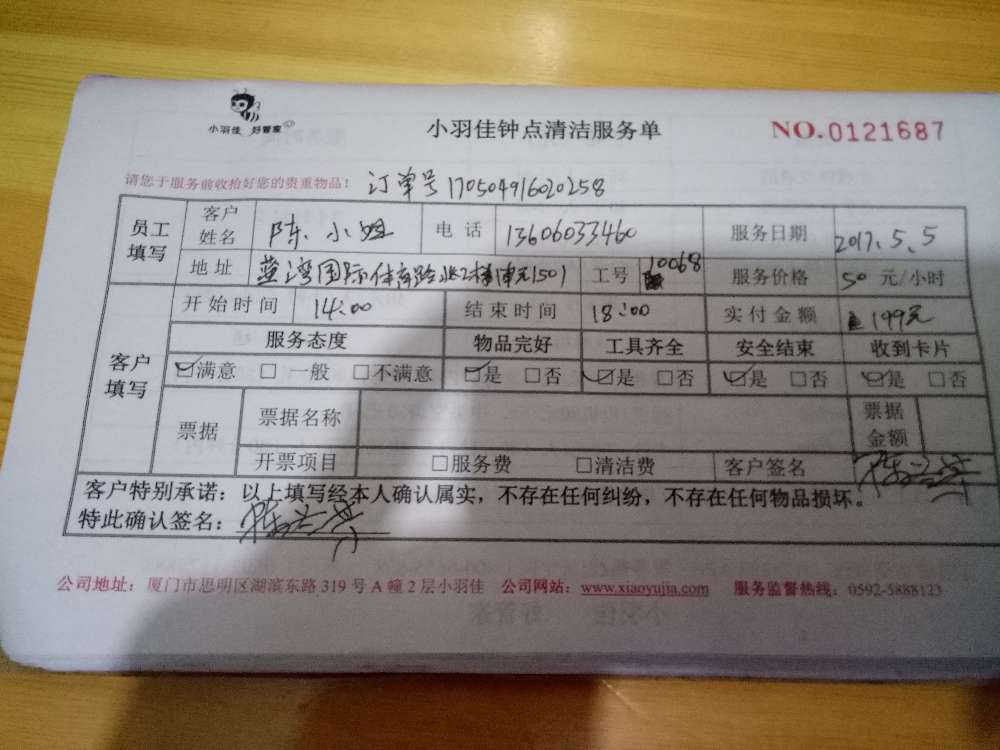 小羽佳 好管家
小羽佳钟点清洁服务单
NO.0121687
请您于服务前收拾好您的贵重物品! 订单号 170504916020258
员工填写 客户姓名 陈小姐 电话 13606033460 服务日期 2017.5.5
地址 蓝湾国际体育路 1501 工号 10068 服务价格 50 元/小时
开始时间 14:00 结束时间 18:00 实付金额 199元
客户填写 服务态度 物品完好 工具齐全 安全结束 收到卡片
☑满意 □一般 □不满意 ☑是 □否 ☑是 □否 ☑是 □否 ☑是 □否
票据 票据名称 票据金额
开票项目 □服务费 □清洁费 客户签名
客户特别承诺:以上填写经本人确认属实,不存在任何纠纷,不存在任何物品损坏。
特此确认签名:
公司地址:厦门市思明区湖滨东路 319 号 A 幢 2 层小羽佳 公司网站:www.xiaoyujia.com 服务监督热线:0592-5888123